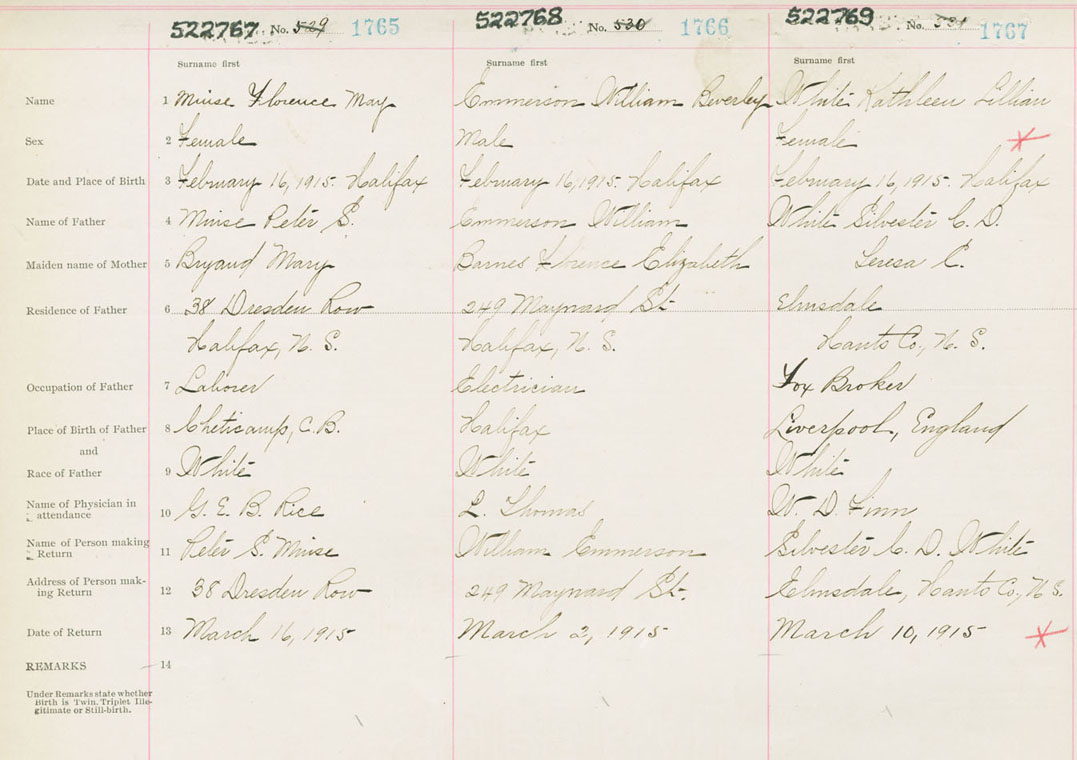 522767 No. 529 1765 522768 No. 530 1766 522769 No. 531 1767
Surname first Surname first Surname first
Name 1 Muise Florence May Emmerson William Beverley White Kathleen Lillian
Sex 2 Female Male Female
Date and Place of Birth 3 February 16, 1915. Halifax February 16, 1915. Halifax February 16, 1915. Halifax
Name of Father 4 Muise Peter S. Emmerson William White Silvester C. D.
Maiden name of Mother 5 Bryaud Mary Barnes Florence Elizabeth Teresa C.
Residence of Father 6 38 Dresden Row 249 Maynard St. Elmsdale
Halifax, N. S. Halifax, N. S. Hants Co., N. S.
Occupation of Father 7 Laborer Electrician Fox Broker
Place of Birth of Father 8 Cheticamp, C. B. Halifax Liverpool, England
and
Race of Father 9 White White White
Name of Physician in
attendance 10 G. E. B. Rice L. Thomas W. D. Finn
Name of Person making
Return 11 Peter S. Muise William Emmerson Silvester C. D. White
Address of Person mak-
ing Return 12 38 Dresden Row 249 Maynard St. Elmsdale, Hants Co., N. S.
Date of Return 13 March 16, 1915 March 2, 1915 March 10, 1915
REMARKS 14
Under Remarks state whether
Birth is Twin. Triplet Ille-
gitimate or Still-birth.